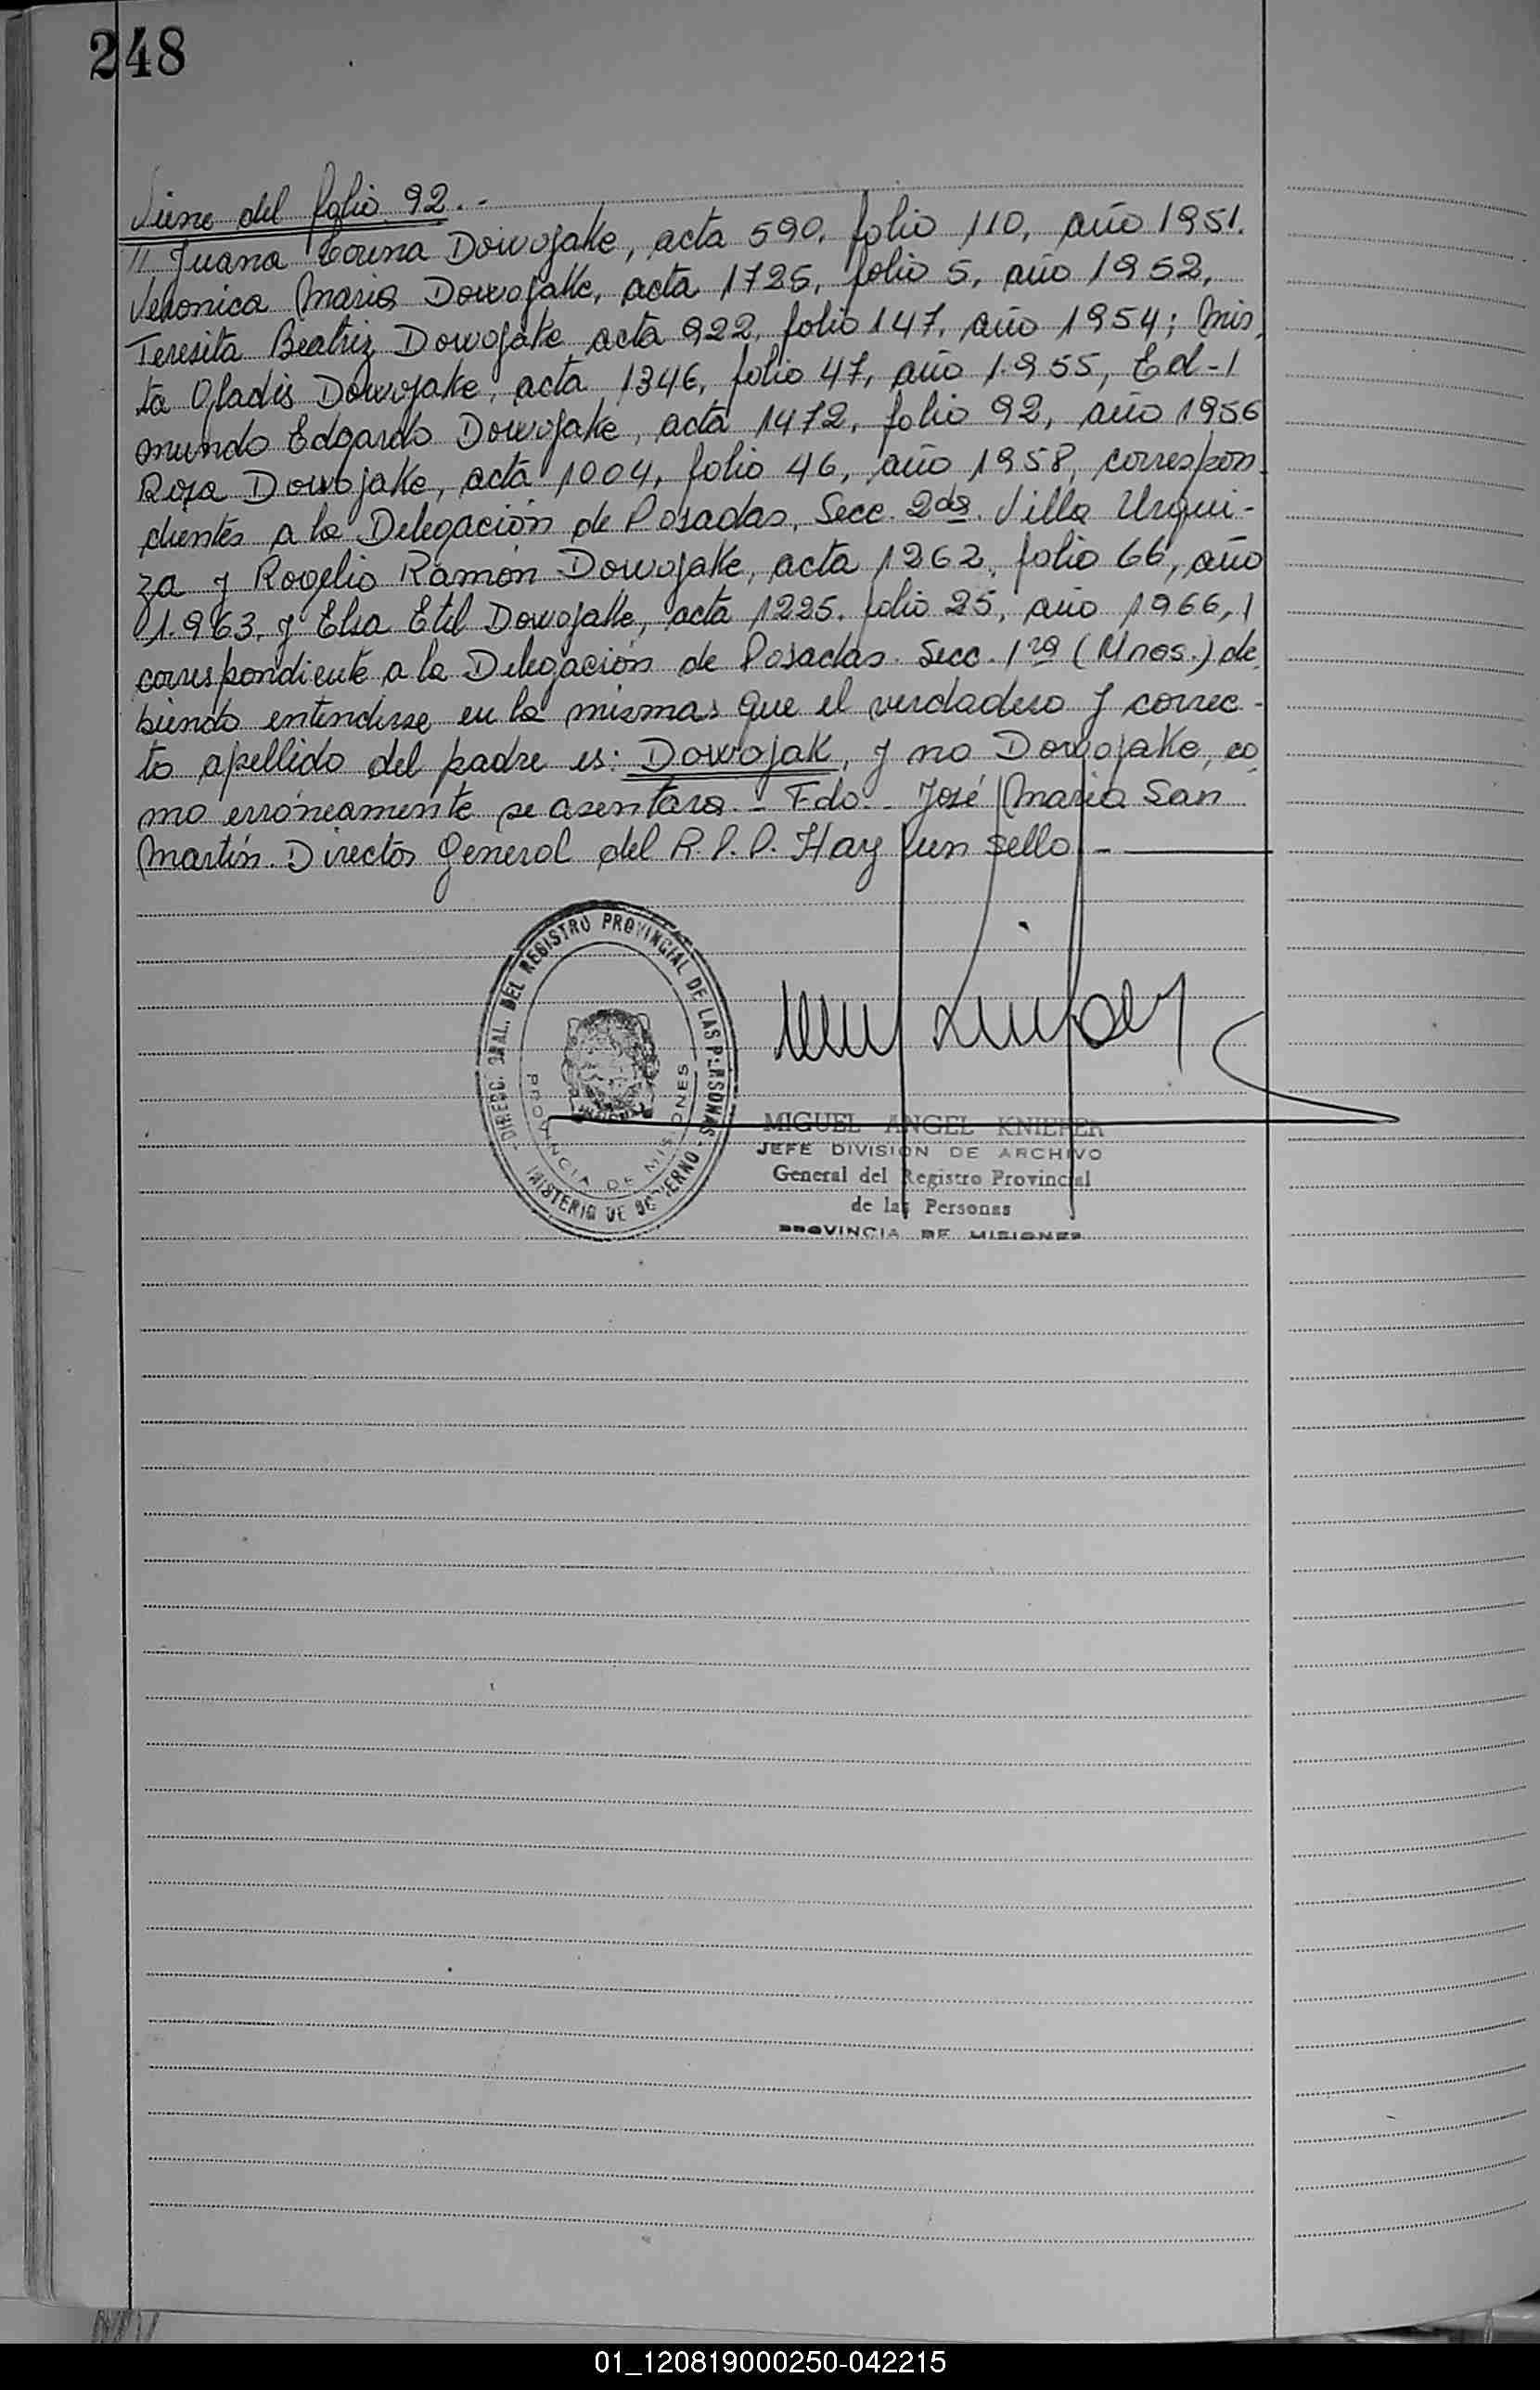 248
Viene del folio 92.-
// Juana Corina Dowojake, acta 590, folio 110, año 1951.
Veronica Maria Dowojake, acta 1725, folio 5, año 1952,
Teresita Beatriz Dowojake acta 922, folio 147, año 1954; Mir
ta Gladis Dowojake, acta 1346, folio 47, año 1.955, Ed-/
mundo Edgardo Dowojake, acta 1472, folio 92, año 1956
Rosa Dowojake, acta 1004, folio 46, año 1958, correspon-
dientes a la Delegación de Posadas, Secc. 2da. Villa Urqui-
za y Rogelio Ramón Dowojake, acta 1262, folio 66, año
1.963, y Elsa Etel Dowojake, acta 1225. folio 25, año 1966,/
correspondiente a la Delegación de Posadas. Secc. 1ra (Mnes.) de
biendo entenderse en la mismas que el verdadero y correc-
to apellido del padre es: Dowojak, y no Dowojake, co
mo erróneamente se asentara.- Fdo.- José Maria San
Martín. Director General del R.P.P. Hay un sello.-
DIREC. GRAL. DEL REGISTRO PROVINCIAL DE LAS PERSONAS
PROVINCIA DE MISIONES
MINISTERIO DE GOBIERNO
MIGUEL ANGEL KNIEPER
JEFE DIVISION DE ARCHIVO
General del Registro Provincial
de las Personas
PROVINCIA DE MISIONES
01_120819000250-042215